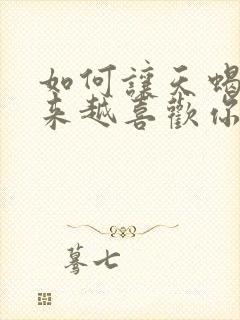 如何讓天蝎
来越喜歡你
蓦七